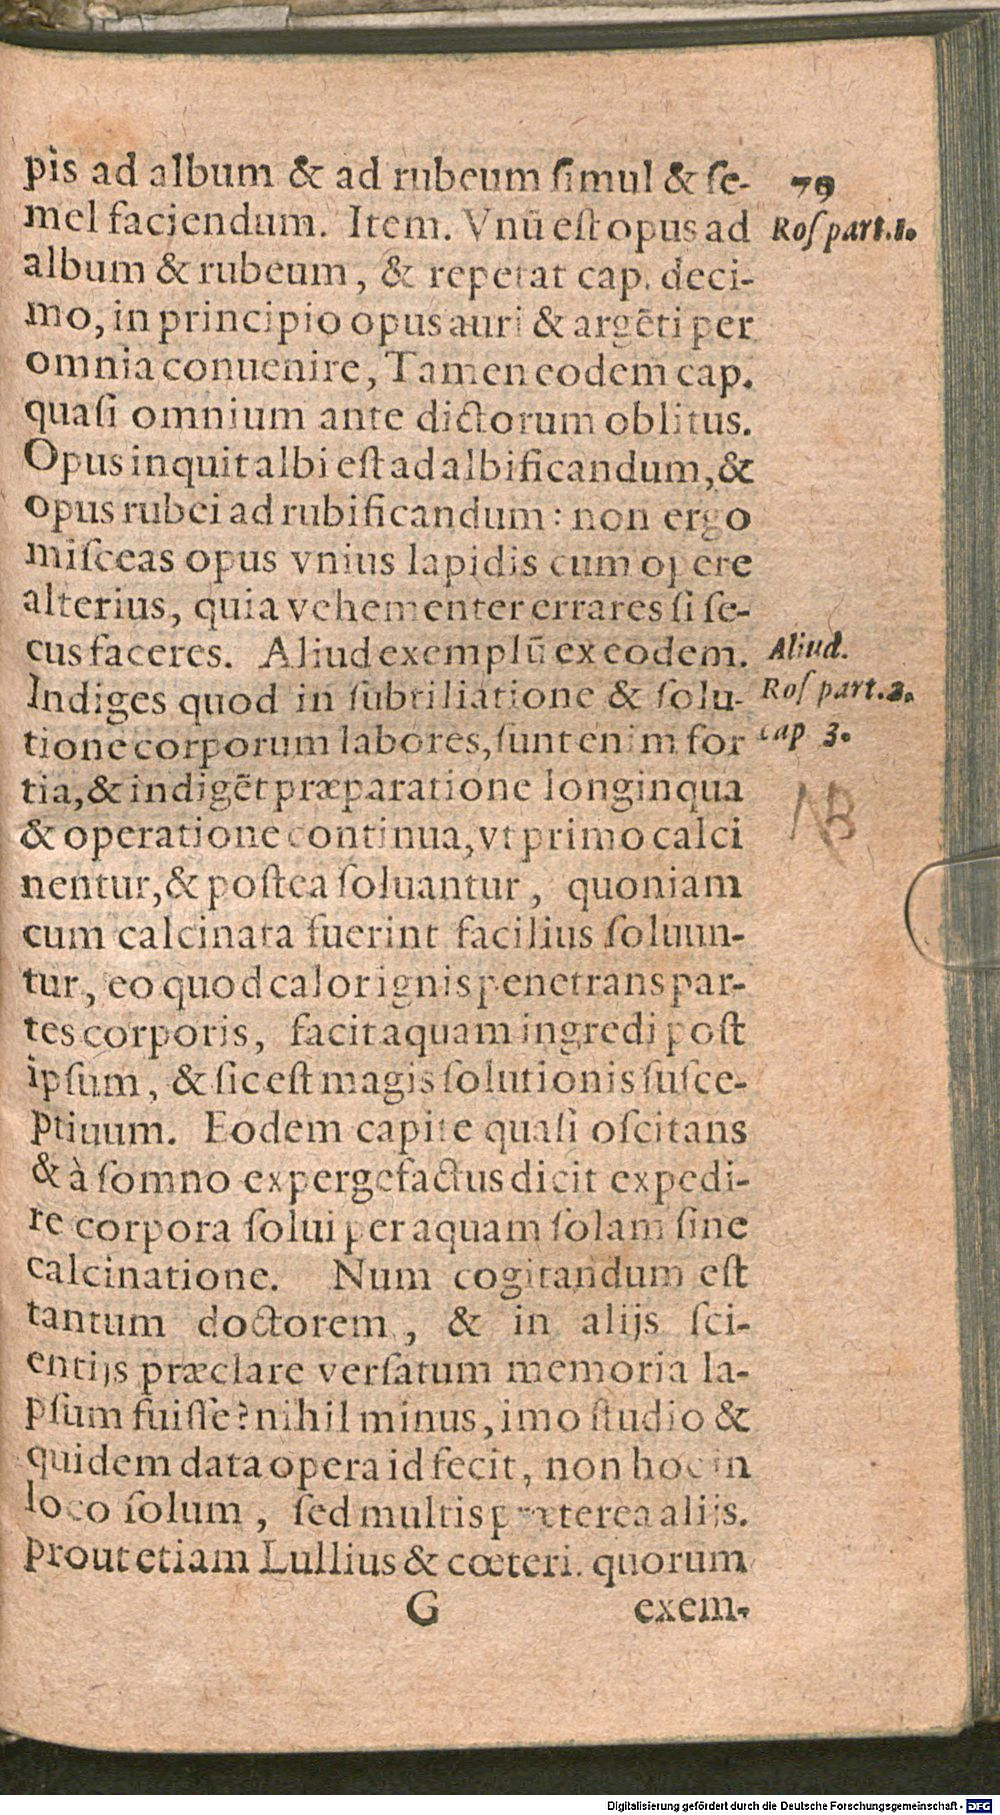 pis ad album & ad rubeum simul & se-
79
mel faciendum. Item. Vnū est opus ad
Ros part.1.
album & rubeum, & repetat cap. deci-
mo, in principio opus auri & argēti per
omnia conuenire, Tamen eodem cap.
quasi omnium ante dictorum oblitus.
Opus inquit albi est ad albificandum, &
opus rubei ad rubificandum: non ergo
misceas opus vnius lapidis cum opere
alterius, quia vehementer errares si se-
cus faceres. Aliud exemplū ex eodem.
Aliud.
Indiges quod in subtiliatione & solu-
Ros part.2.
tione corporum labores, sunt enim for
cap 3.
tia, & indigēt præparatione longinqua
NB
& operatione continua, vt primo calci
nentur, & postea soluantur, quoniam
cum calcinata fuerint facilius soluun-
tur, eo quod calor ignis penetrans par-
tes corporis, facit aquam ingredi post
ipsum, & sic est magis solutionis susce-
ptiuum. Eodem capite quasi oscitans
& à somno expergefactus dicit expedi-
re corpora solui per aquam solam sine
calcinatione. Num cogitandum est
tantum doctorem, & in alijs sci-
entijs præclare versatum memoria la-
psum fuisse? nihil minus, imo studio &
quidem data opera id fecit, non hoc in
loco solum, sed multis præterea alijs.
Prout etiam Lullius & cœteri. quorum
G exem-
Digitalisierung gefördert durch die Deutsche Forschungsgemeinschaft - DFG